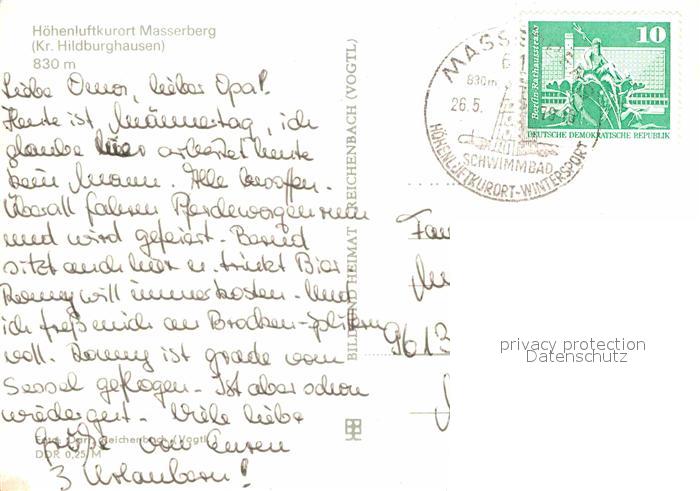 Höhenluftkurort Masserberg
(Kr. Hildburghausen)
830 m
Liebe Oma, lieber Opa!
Heute ist Männertag, ich
glaube hier arbeitet heute
kein Mann. Alle besoffen.
Überall fahren Pferdewagen rum
und wird gefeiert. Bernd
sitzt auch hier u. trinkt Bier
Ronny will immer kosten. Und
ich freß mich an Brocken-splittern
voll. Ronny ist grade vom
Sessel geflogen. Ist aber schon
wieder gut. Viele liebe
Grüße von Euren
3 Urlaubern!
Reichenbach (Vogtl
DDR 0,25 M
BILD UND HEIMAT REICHENBACH (VOGTL)
MASS
830m
26.5.
SCHWIMMBAD
HÖHENLUFTKURORT-WINTERSPORT
10
Berlin, Rathausstraße
DEUTSCHE DEMOKRATISCHE REPUBLIK
Fam
9613
privacy protection
Datenschutz